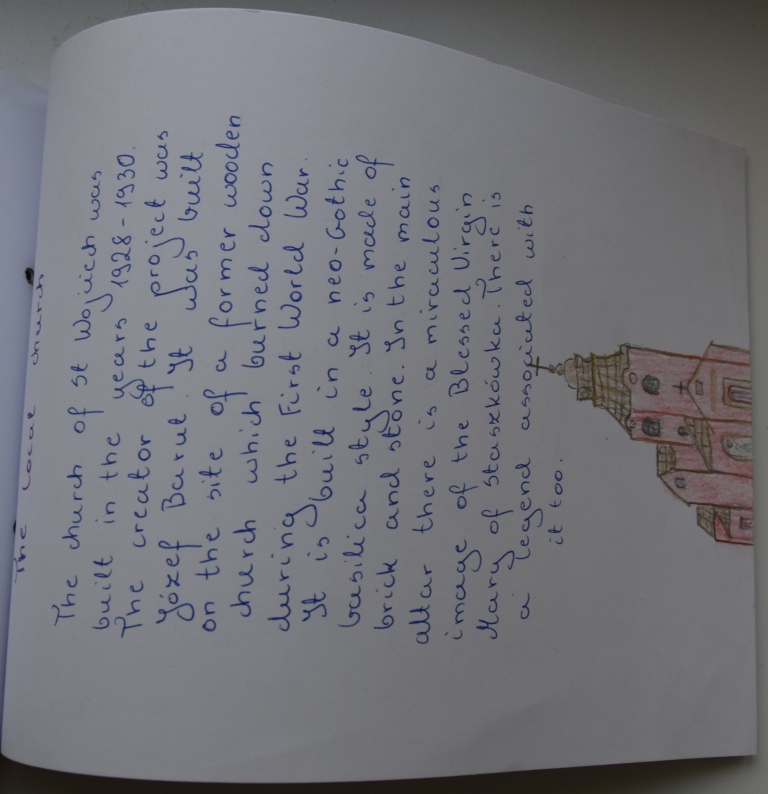 The local church
The church of st Wojciech was
built in the years 1928-1930.
The creator of the project was
Józef Barut. It was built
on the site of a former wooden
church which burned down
during the First World War.
It is built in a neo-Gothic
basilica style. It is made of
brick and stone. In the main
altar there is a miraculous
image of the Blessed Virgin
Mary of Staszkówka. There is
a legend associated with
it too.